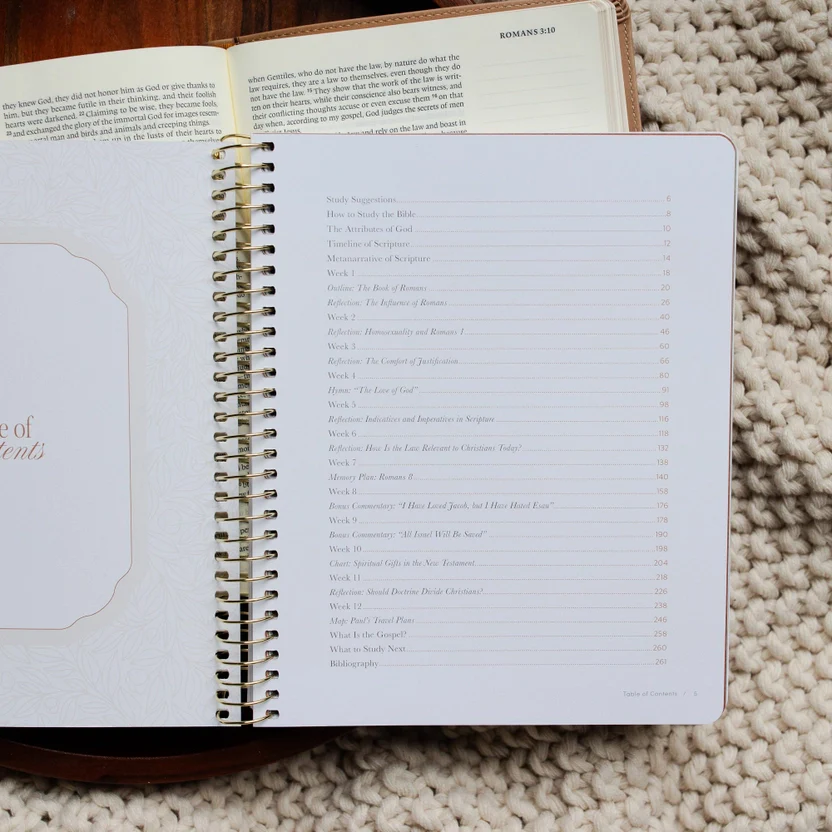 ROMANS 3:10
they knew God, they did not honor him as God or give thanks to
him, but they became futile in their thinking, and their foolish
hearts were darkened. 22 Claiming to be wise, they became fools,
23 and exchanged the glory of the immortal God for images resem-
man and birds and animals and creeping things.
up in the lusts of their hearts to
when Gentiles, who do not have the law, by nature do what the
law requires, they are a law to themselves, even though they do
not have the law. 15 They show that the work of the law is writ-
ten on their hearts, while their conscience also bears witness, and
their conflicting thoughts accuse or even excuse them 16 on that
day when, according to my gospel, God judges the secrets of men
and rely on the law and boast in
e of
tents
Study Suggestions 6
How to Study the Bible 8
The Attributes of God 10
Timeline of Scripture 12
Metanarrative of Scripture 14
Week 1 18
Outline: The Book of Romans 20
Reflection: The Influence of Romans 26
Week 2 40
Reflection: Homosexuality and Romans 1 46
Week 3 60
Reflection: The Comfort of Justification 66
Week 4 80
Hymn: "The Love of God" 91
Week 5 98
Reflection: Indicatives and Imperatives in Scripture 116
Week 6 118
Reflection: How Is the Law Relevant to Christians Today? 132
Week 7 138
Memory Plan: Romans 8 140
Week 8 158
Bonus Commentary: "I Have Loved Jacob, but I Have Hated Esau" 176
Week 9 178
Bonus Commentary: "All Israel Will Be Saved" 190
Week 10 198
Chart: Spiritual Gifts in the New Testament 204
Week 11 218
Reflection: Should Doctrine Divide Christians? 226
Week 12 238
Map: Paul's Travel Plans 246
What Is the Gospel? 258
What to Study Next 260
Bibliography 261
Table of Contents / 5